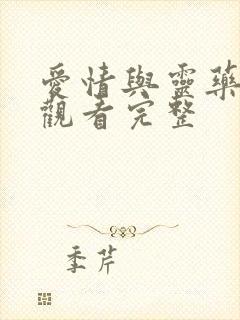 愛情與靈藥
觀看完整
季芹